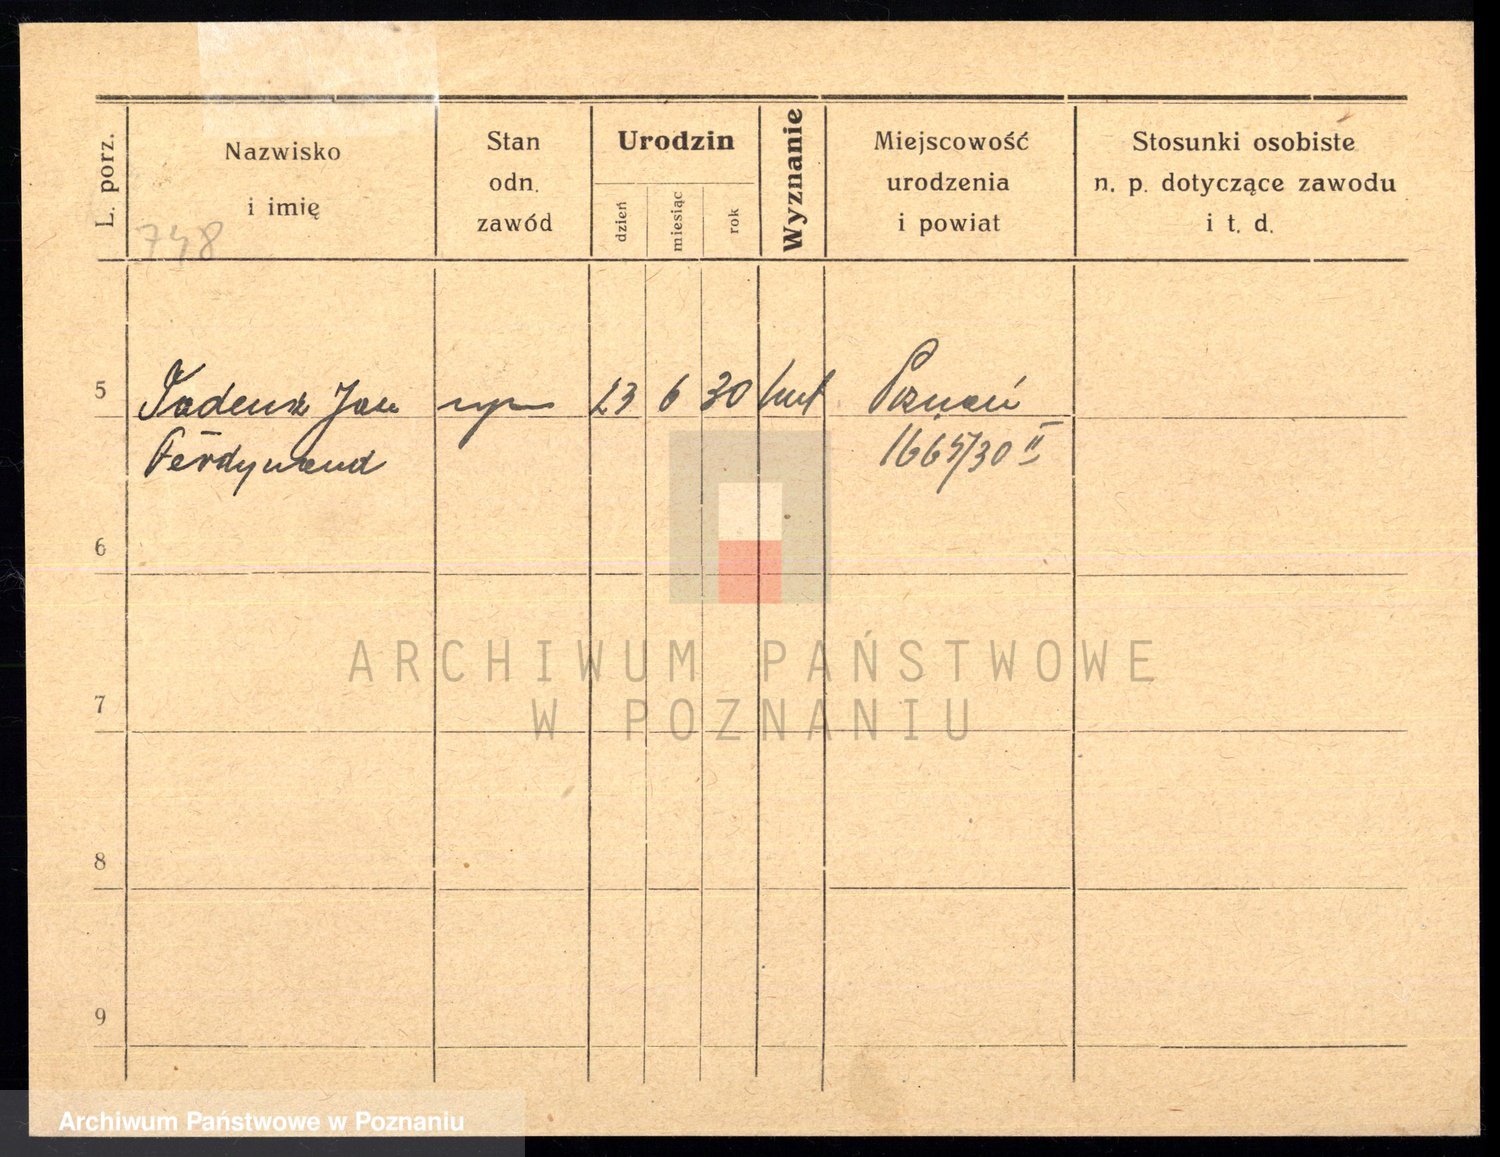 L. porz.
Nazwisko
i imię
Stan
odn.
zawód
Urodzin
dzień
miesiąc
rok
Wyznanie
Miejscowość
urodzenia
i powiat
Stosunki osobiste
n. p. dotyczące zawodu
i t. d.
748
5 Tadeusz Jan syn 23 6 30 Poznań
Ferdynand 1665/30 II
6
7
8
9
ARCHIWUM PAŃSTWOWE
W POZNANIU
Archiwum Państwowe w Poznaniu